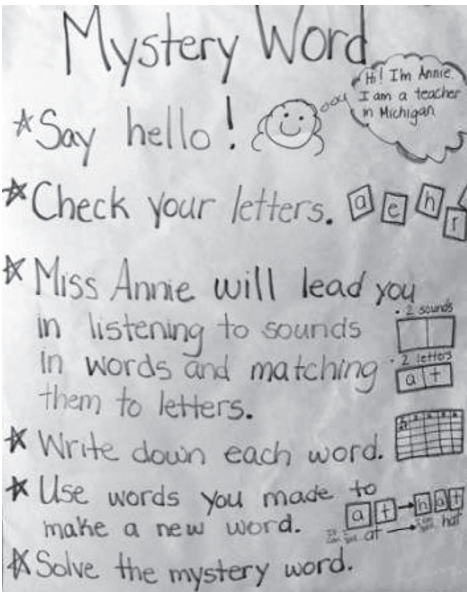 Mystery Word
☆ Say hello!
Hi! I'm Annie.
I am a teacher
in Michigan
☆ Check your letters.
a e h r
☆ Miss Annie will lead you
in listening to sounds
in words and matching
them to letters.
• 2 sounds
• 2 letters
a t
☆ Write down each word.
☆ Use words you made to
make a new word.
a t → h a t
at → hat
☆ Solve the mystery word.